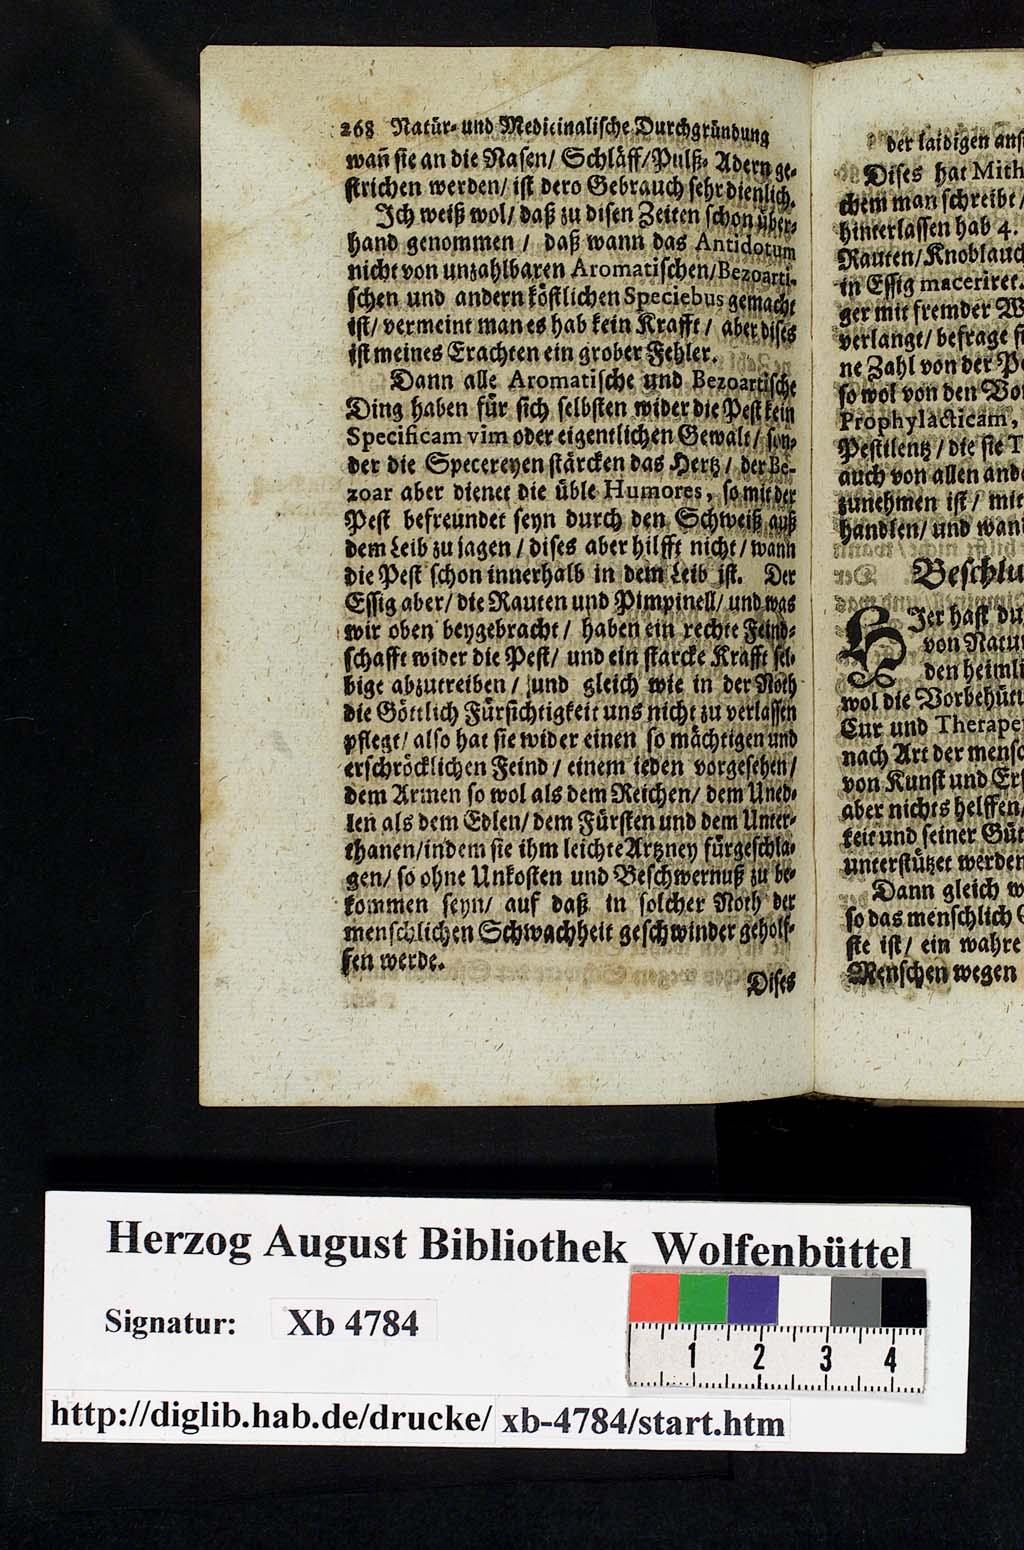 268 Natür- und Medicinalische Durchgründung
wañ sie an die Nasen/ Schläff/Pulß- Adern ge-
strichen werden/ ist dero Gebrauch sehr dienlich.
Ich weiß wol/ daß zu disen Zeiten schon über-
hand genommen / daß wann das Antidotum
nicht von unzahlbaren Aromatischen/Bezoarti-
schen und andern köstlichen Speciebus gemacht
ist/ vermeint man es hab kein Krafft / aber dises
ist meines Erachten ein grober Fehler.
Dann alle Aromatische und Bezoartische
Ding haben für sich selbsten wider die Pest kein
Specificam vim oder eigentlichen Gewalt/ son-
der die Specereyen stärcken das Hertz / der Be-
zoar aber dienet die üble Humores, so mit der
Pest befreundet seyn durch den Schweiß auß
dem Leib zu jagen / dises aber hilfft nicht / wann
die Pest schon innerhalb in dem Leib ist. Der
Essig aber/ die Rauten und Pimpinell/ und was
wir oben beygebracht / haben ein rechte Feind-
schafft wider die Pest/ und ein starcke Krafft sel-
bige abzutreiben / und gleich wie in der Noth
die Göttlich Fürsichtigkeit uns nicht zu verlassen
pflegt/ also hat sie wider einen so mächtigen und
erschröcklichen Feind / einem ieden vorgesehen/
dem Armen so wol als dem Reichen/ dem Uned-
len als dem Edlen/ dem Fürsten und dem Unter-
thanen/indem sie ihm leichte Artzney fürgeschla-
gen/ so ohne Unkosten und Beschwernuß zu be-
kommen seyn/ auf daß in solcher Noth der
menschlichen Schwachheit geschwinder geholf-
fen werde.
Dises
der laidigen anst
Dises hat Mith
chem man schreibt/
hinterlassen hab 4.
Rauten/Knoblauch
in Essig maceriret.
ger mit fremder W
verlangt/ befrage si
ne Zahl von der Pe
so wol von den Vor
Prophylacticam,
Pestilentz / die sie T
auch von allen ande
zunehmen ist/ mit
handlen/ und wann
Beschlu
HJer hast du
von Natur
den heimli
wol die Vorbehütt
Cur und Therapeu
nach Art der mensc
von Kunst und Erf
aber nichts helffen/
keit und seiner Güt
unterstützet werden
Dann gleich w
so das menschlich G
ste ist/ ein wahre
Menschen wegen
Herzog August Bibliothek Wolfenbüttel
Signatur: Xb 4784
1 2 3 4
http://diglib.hab.de/drucke/ xb-4784/start.htm